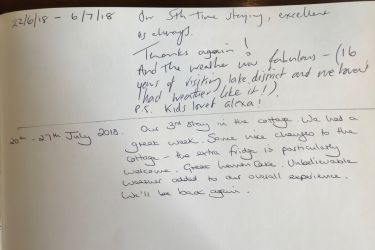 22/6/18 - 6/7/18 Our 5th time staying, excellent
as always.
Thanks again!
And the weather was fabulous - (16
years of visiting lake district and we haven't
had weather like it!).
P.S. Kids love alexa!
20th - 27th July 2018. Our 3rd stay in the cottage. We had a
great week. Some nice changes to the
cottage - the extra fridge is particularly
welcome. Great lemon cake. Unbelievable
weather added to our overall experience.
We'll be back again.